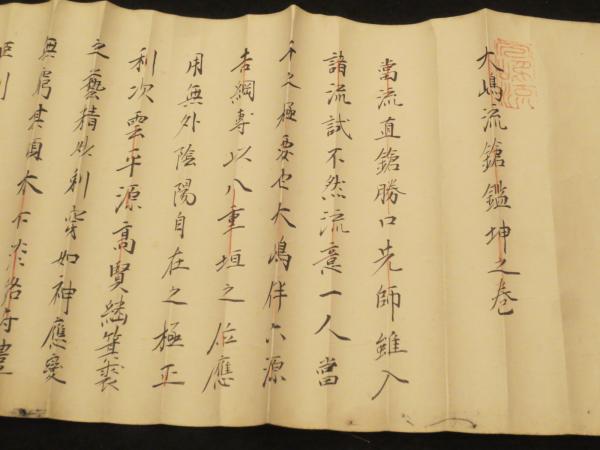 大嶋流鎗鑑坤之巻
當流直鎗勝口先師雖入
諸流試不然流意一人當
千之極要也大嶋伴六源
吉綱專以八重垣之位應
用無外陰陽自在之極正
利次雲平源高賢繼箕裘
之藝精妙刺穿如神應變
無窮其自木下淡路守豊
臣利